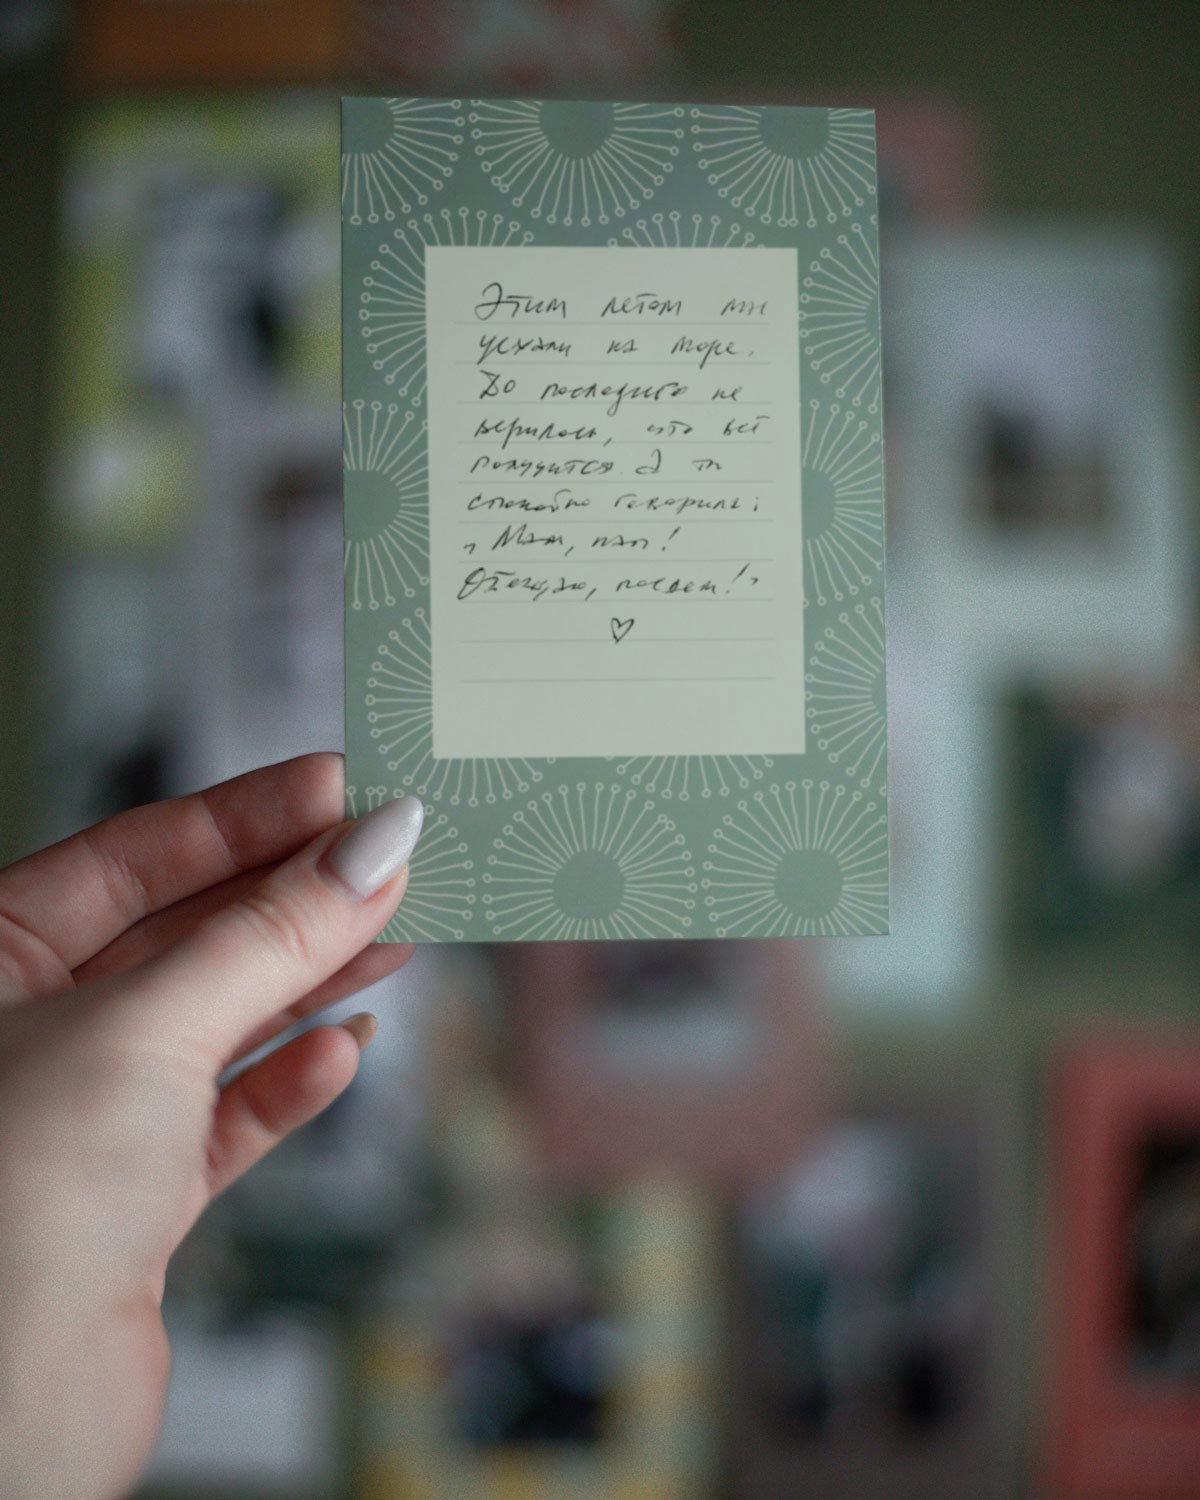 Этим летом мы
уехали на море.
До последнего не
верилось, что всё
получится. А ты
спокойно говорила:
„Мам, пап!
поедем!"
♡